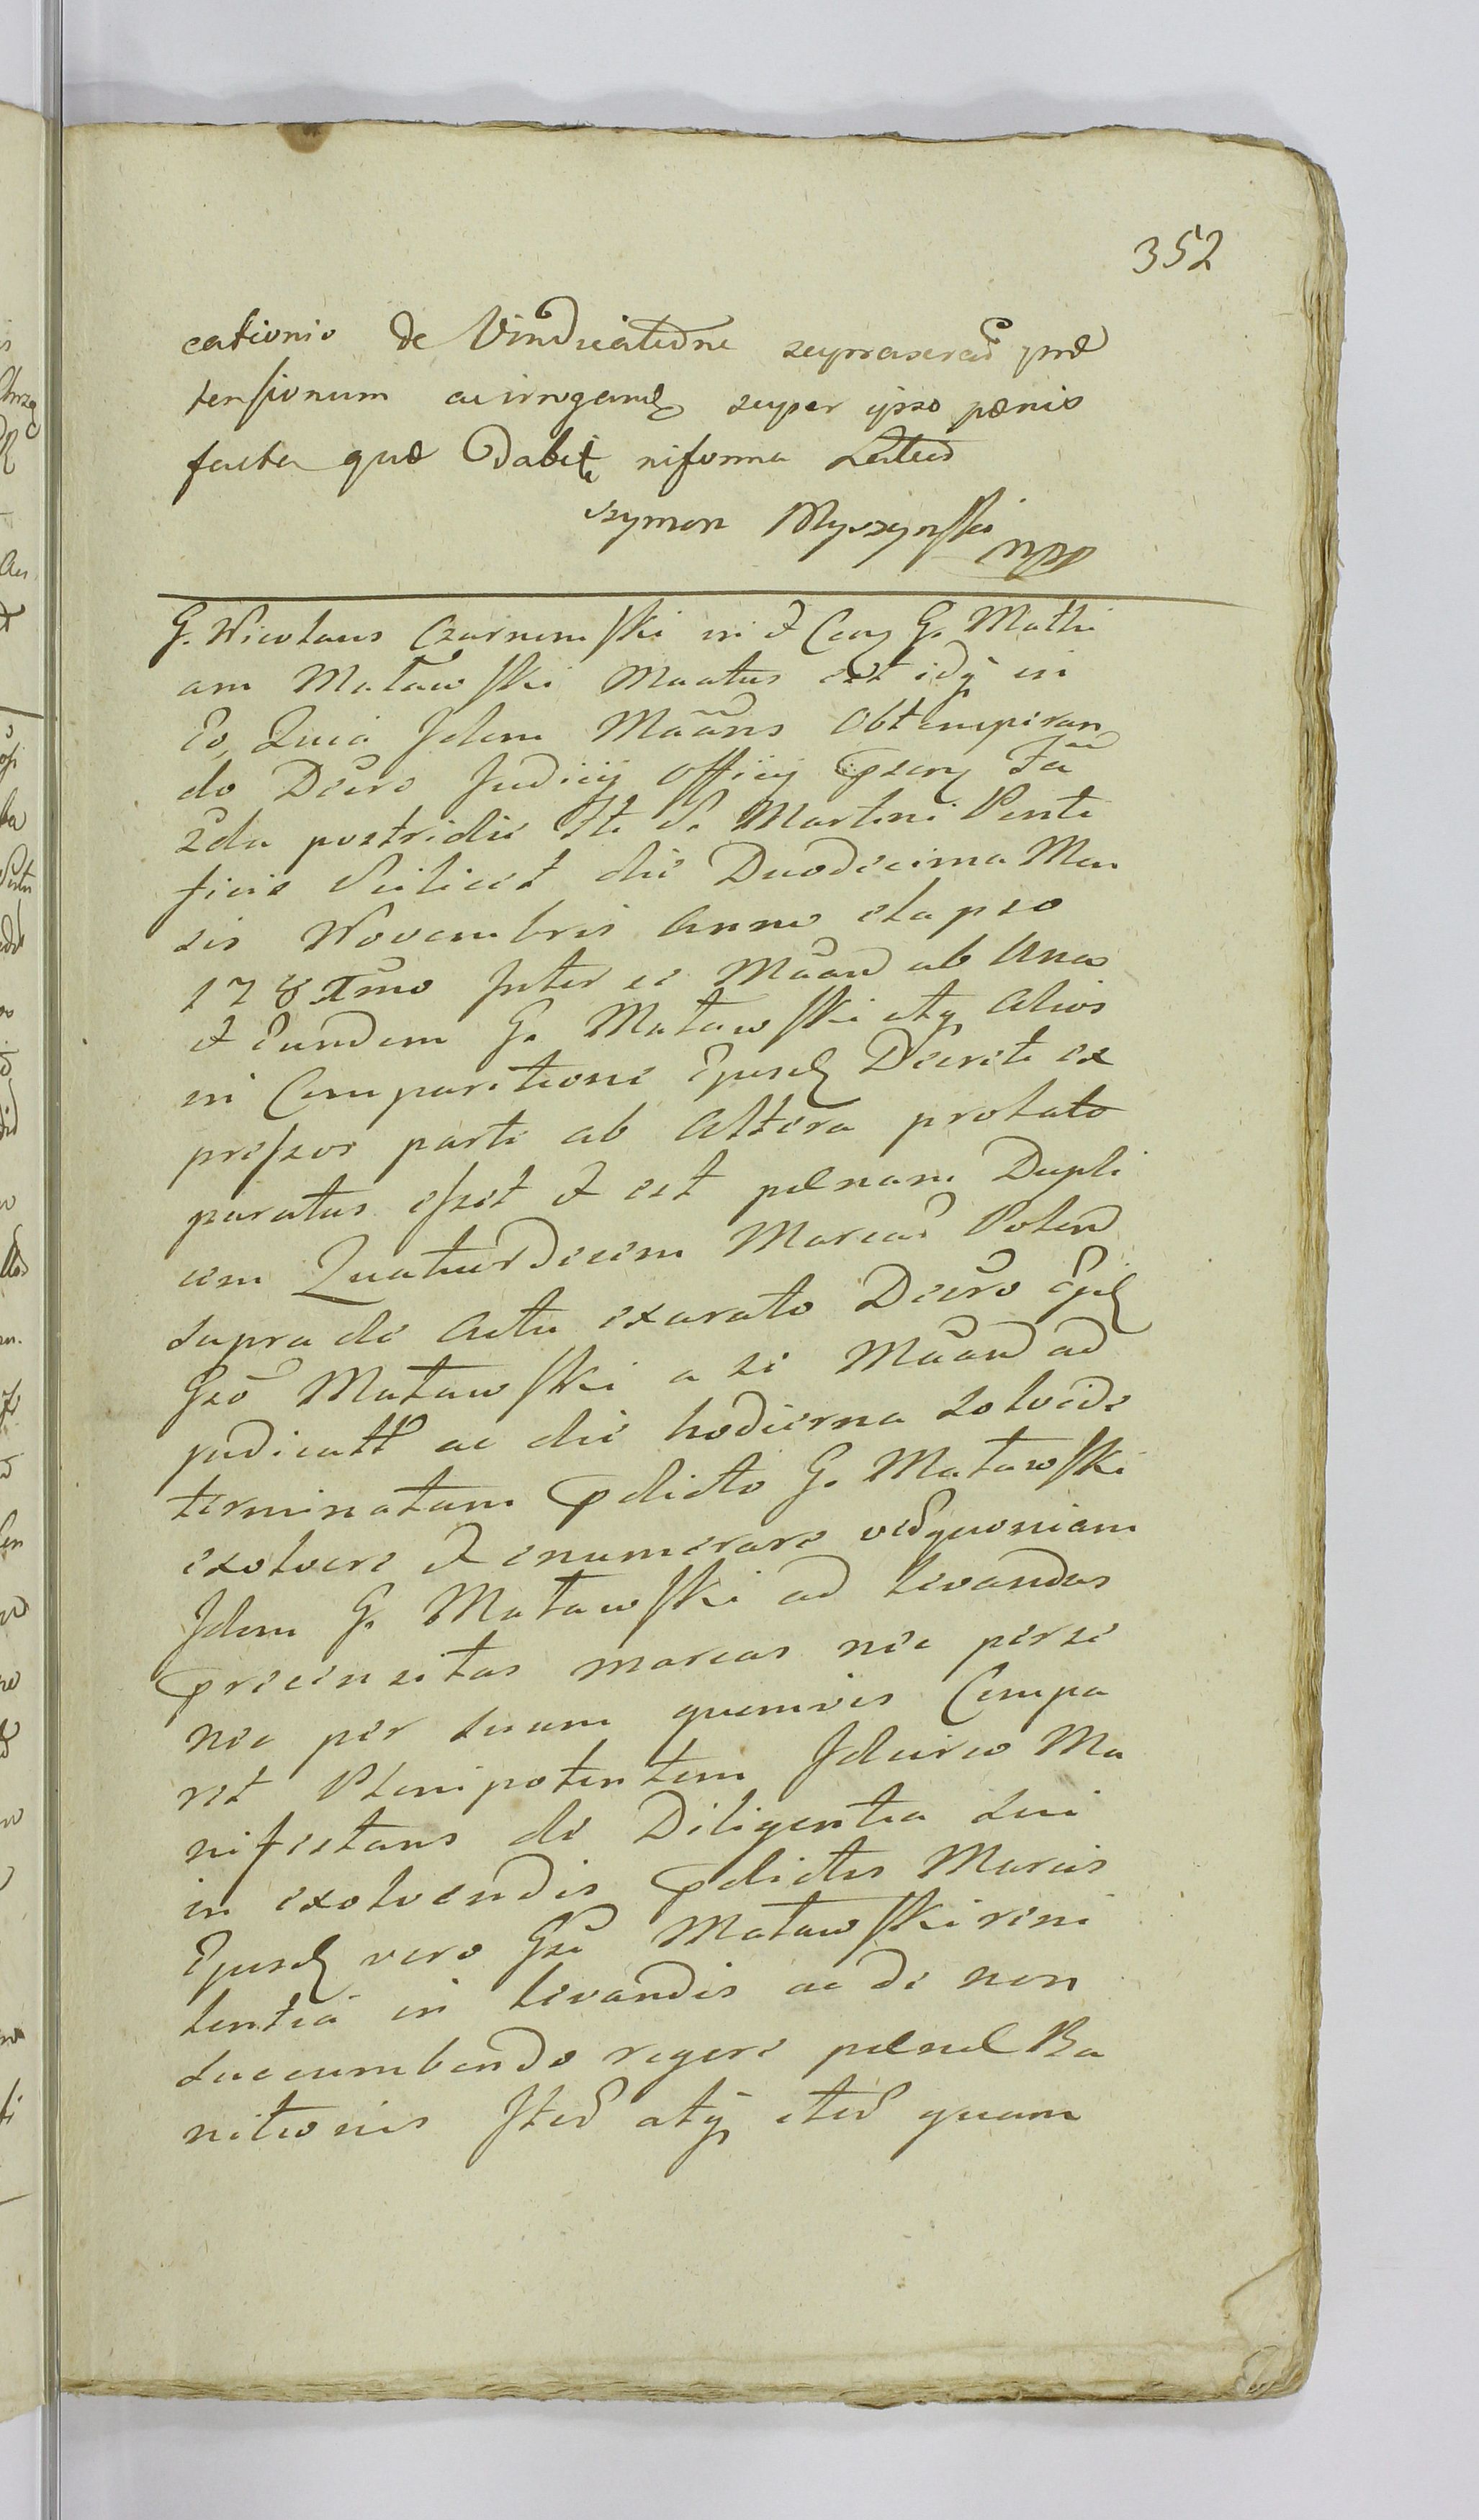 352
cationis de Vindicatione suprascrād præ
tensionum ac irrogand super ipso pœnis
facta quæ dabit in forma Latius
Szymon Myszynski
mpp
G. Nicolaus Czarnomski in et Coaz G. Mathi
am Matawski Maatus est idq in
Eo, Quia Idem Maans Obtemperan
do Decro Judicij Officij psen Fa
2da postridie Fti S. Martini Ponti
ficis Scilicet die Duodecima Men
sis Novembris Anno elapso
178 Imo Inter se Maan ab Una
et Eundem G. Matawski atq Alios
in Comparitione Ejusd Decreti ex
pressos parte ab Altera prolato
paratus esset et est pœnam Dupli
cem Quatuordecim Marcar Polon
supra de Actu exarato Decro Ejusd
Gso Matawski a se Maan ad
judicatt ac die hodierna solvi de
terminatam pdicto G. Matawski
exolvere et enumerare ved quoniam
Idem G. Matawski ad levandas
precensitas marcas nec per se
nec per suum quemvis Compa
ret Plenipotentem Idcirco Ma
nifestans de Diligentia sui
in exolvendis pdictis Marcis
Ejusd vero Gsi Matawski reni
tentia in levandis ac de non
succumbendo rigore pœnæ Ba
nitionis Ited atq ited quam